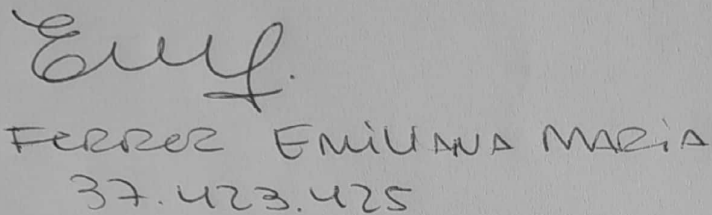 FERRER EMILIANA MARIA
37.423.425